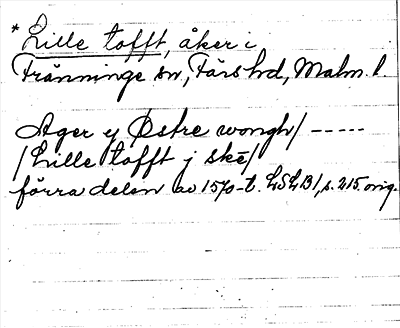 *Lille tofft, åker i
Tränninge sn, Färs hd, Malm. l.
Ager y Østre wongh/ -----
/Lille tofft j skē/
förra delen av 1570-t. LSLB1, s. 215 orig.